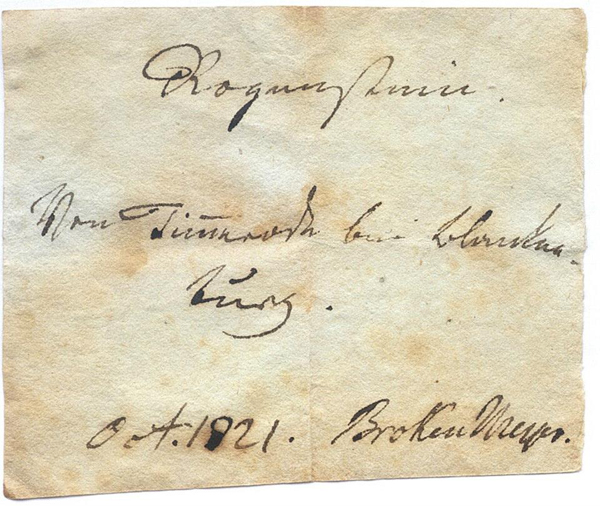 Rogenstein.
Von Tim̄erode bei Blanken-
burg.
Oct. 1821. Broken Meyer.